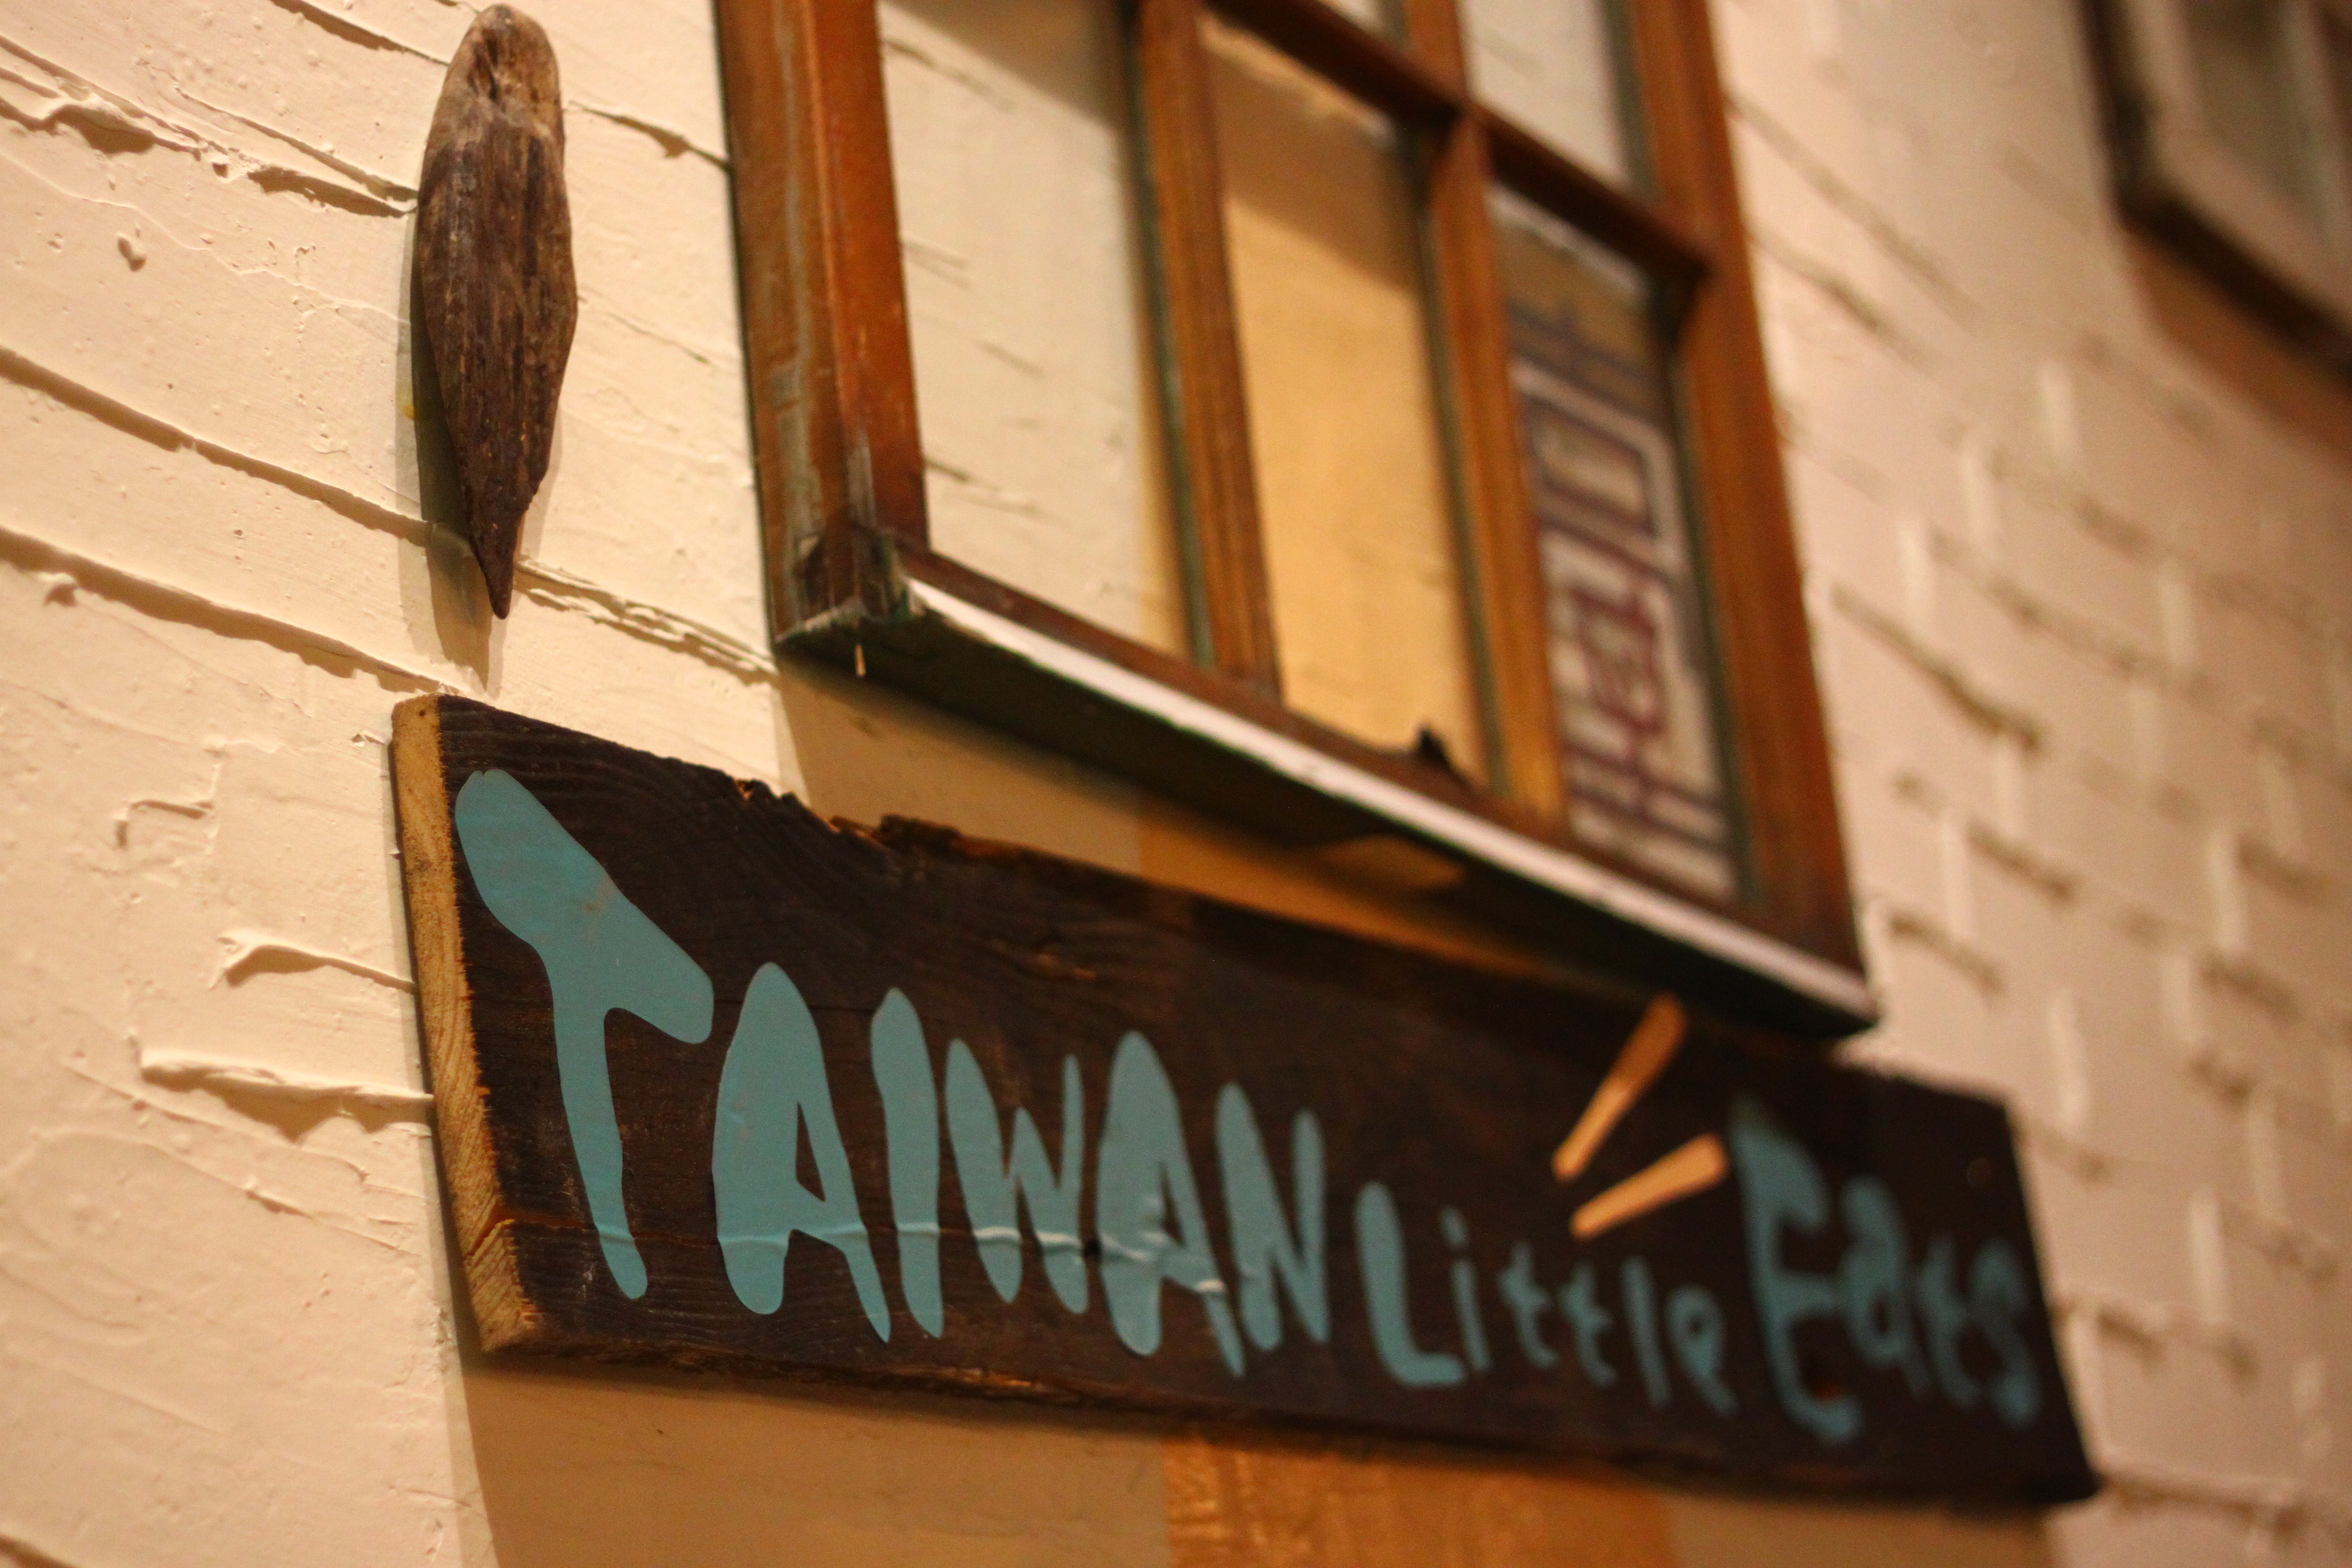 TAIWAN Little Eats